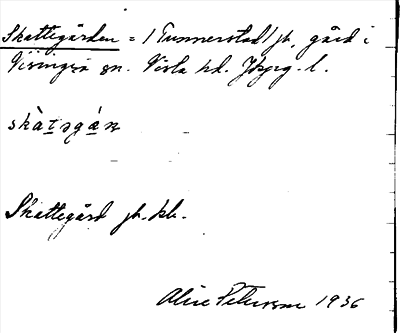 Skattegården = /Tunnerstad/ jb, gård i
Visingsö sn. Vista hd. Jkpg. l.
skàtsgán
Skattegård jb. kb.
Alice Petersson 1936